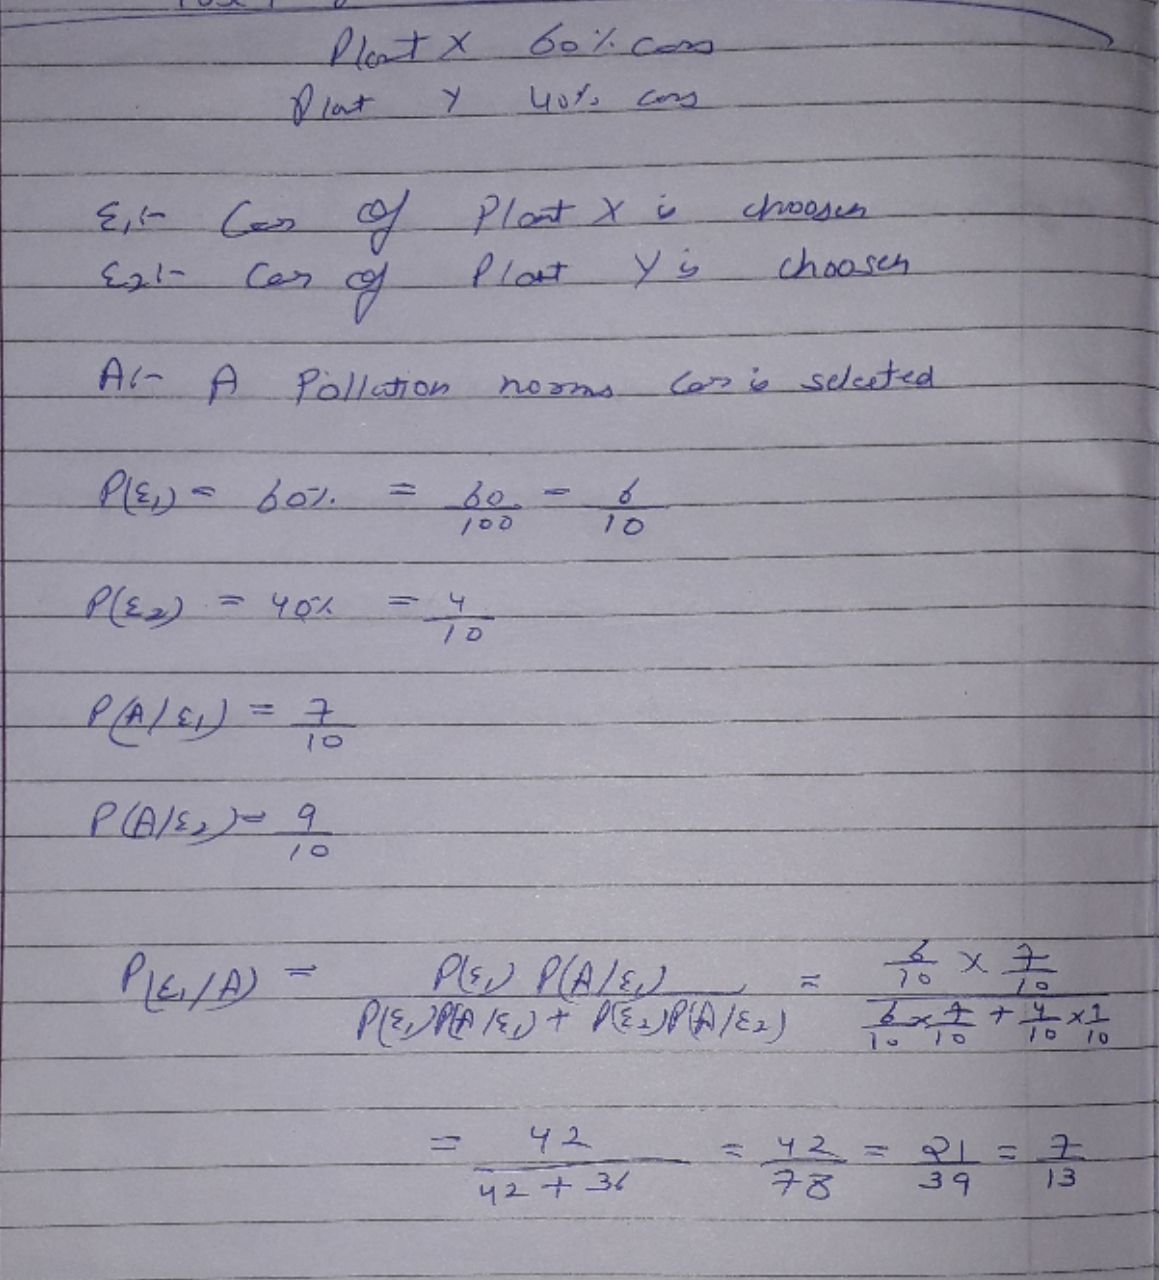 Plant X 60% cars
Plant Y 40% cars
E1:- Car of Plant X is choosen
E2:- Car of Plant Y is choosen
A:- A Pollution norms Car is selected
P(E1) = 60% = 60/100 = 6/10
P(E2) = 40% = 4/10
P(A/E1) = 7/10
P(A/E2) = 9/10
P(E1/A) = P(E1) P(A/E1) / P(E1)P(A/E1) + P(E2)P(A/E2) = 6/10 x 7/10 / 6/10 x 7/10 + 4/10 x 9/10
= 42 / 42 + 36 = 42/78 = 21/39 = 7/13